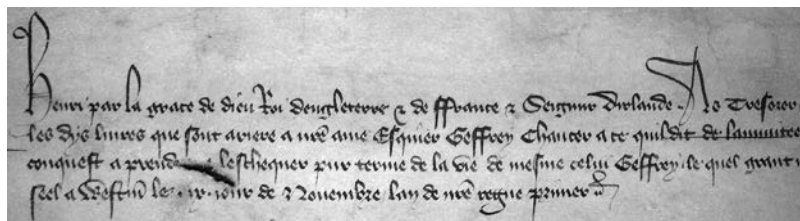 Henri par la grace de dieu Roi dengleterre & de ffrance & Seignur Dirlande As Tresorer
les dys liures que sont ariere a nr̄e ame Esquier Geffrey Chaucer a ce quil dit de lannuitee
conquest a prendre leschequer pur terme de la vie de mesme celui Geffrey le quel grant
seel a Westm̄ le jour de Nouembre lan de nr̄e regne primer